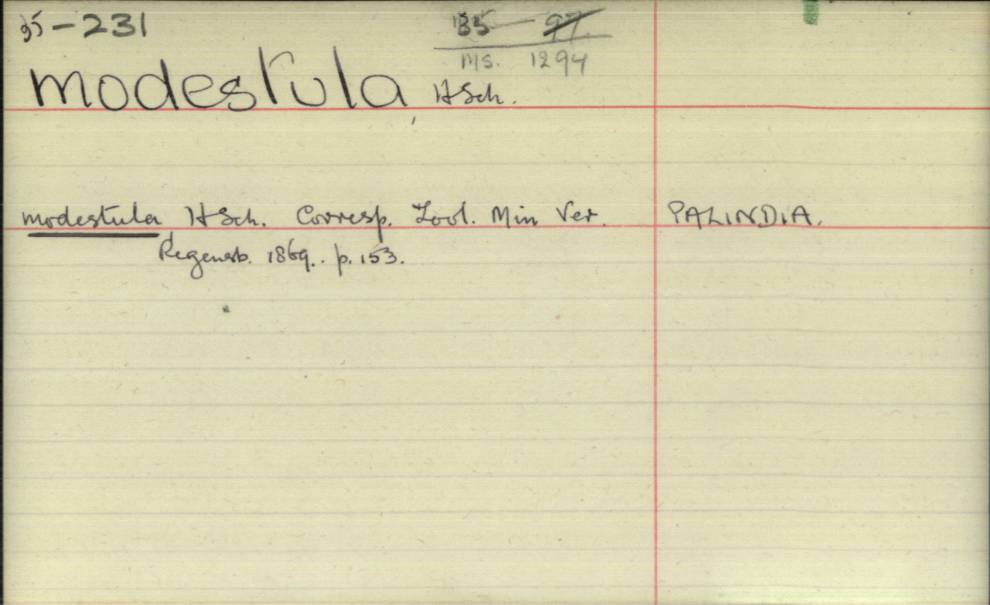 35-231
135 - 97
MS. 1294
modestula, HSch.
modestula HSch. Corresp. Zool. Min Ver. PALINDIA.
Regensb. 1869. p. 153.